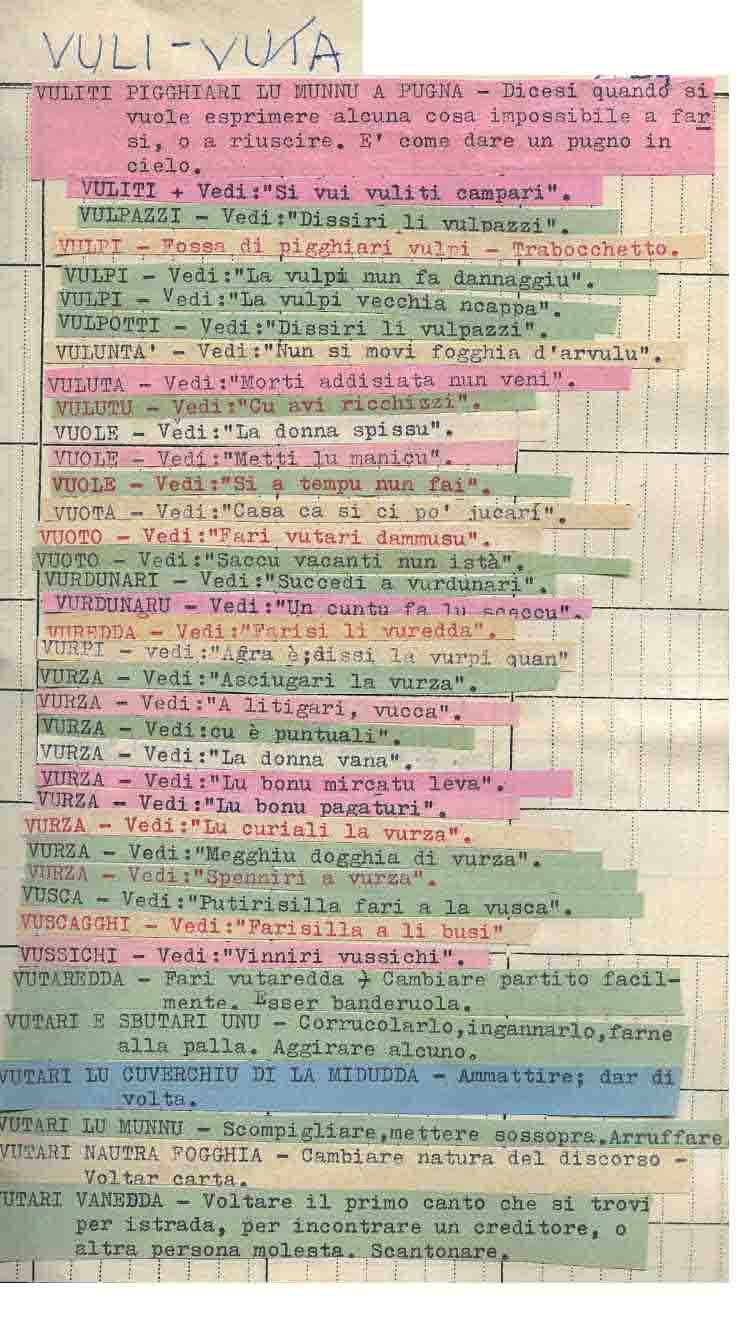 VULI-VUTA
VULITI PIGGHIARI LU MUNNU A PUGNA - Dicesi quando si
vuole esprimere alcuna cosa impossibile a far
si, o a riuscire. E' come dare un pugno in
cielo.
VULITI + Vedi:"Si vui vuliti campari".
VULPAZZI - Vedi:"Dissiri li vulpazzi".
VULPI - Fossa di pigghiari vulpi - Trabocchetto.
VULPI - Vedi:"La vulpi nun fa dannaggiu".
VULPI - Vedi:"La vulpi vecchia ncappa".
VULPOTTI - Vedi:"Dissiri li vulpazzi".
VULUNTA' - Vedi:"Nun si movi fogghia d'arvulu".
VULUTA - Vedi:"Morti addisiata nun veni".
VULUTU - Vedi:"Cu avi ricchizzi".
VUOLE - Vedi:"La donna spissu".
VUOLE - Vedi:"Metti lu manicu".
VUOLE - Vedi:"Si a tempu nun fai".
VUOTA - Vedi:"Casa ca si ci po' jucari".
VUOTO - Vedi:"Fari vutari dammusu".
VUOTO - Vedi:"Saccu vacanti nun istà".
VURDUNARI - Vedi:"Succedi a vurdunari".
VURDUNARU - Vedi:"Un cuntu fa lu sceccu".
VUREDDA - Vedi:"Farisi li vuredda".
VURPI - vedi:"Agra è;dissi la vurpi quan"
VURZA - Vedi:"Asciugari la vurza".
VURZA - Vedi:"A litigari, vucca".
VURZA - Vedi:cu è puntuali".
VURZA - Vedi:"La donna vana".
VURZA - Vedi:"Lu bonu mircatu leva".
VURZA - Vedi:"Lu bonu pagaturi".
VURZA - Vedi:"Lu curiali la vurza".
VURZA - Vedi:"Megghiu dogghia di vurza".
VURZA - Vedi:"Spenniri a vurza".
VUSCA - Vedi:"Putirisilla fari a la vusca".
VUSCAGGHI - Vedi:"Farisilla a li busi"
VUSSICHI - Vedi:"Vinniri vussichi".
VUTAREDDA - Fari vutaredda + Cambiare partito facil-
mente. Esser banderuola.
VUTARI E SBUTARI UNU - Corrucolarlo,ingannarlo,farne
alla palla. Aggirare alcuno.
VUTARI LU CUVERCHIU DI LA MIDUDDA - Ammattire; dar di
volta.
VUTARI LU MUNNU - Scompigliare,mettere sossopra.Arruffare
VUTARI NAUTRA FOGGHIA - Cambiare natura del discorso -
Voltar carta.
UTARI VANEDDA - Voltare il primo canto che si trovi
per istrada, per incontrare un creditore, o
altra persona molesta. Scantonare.